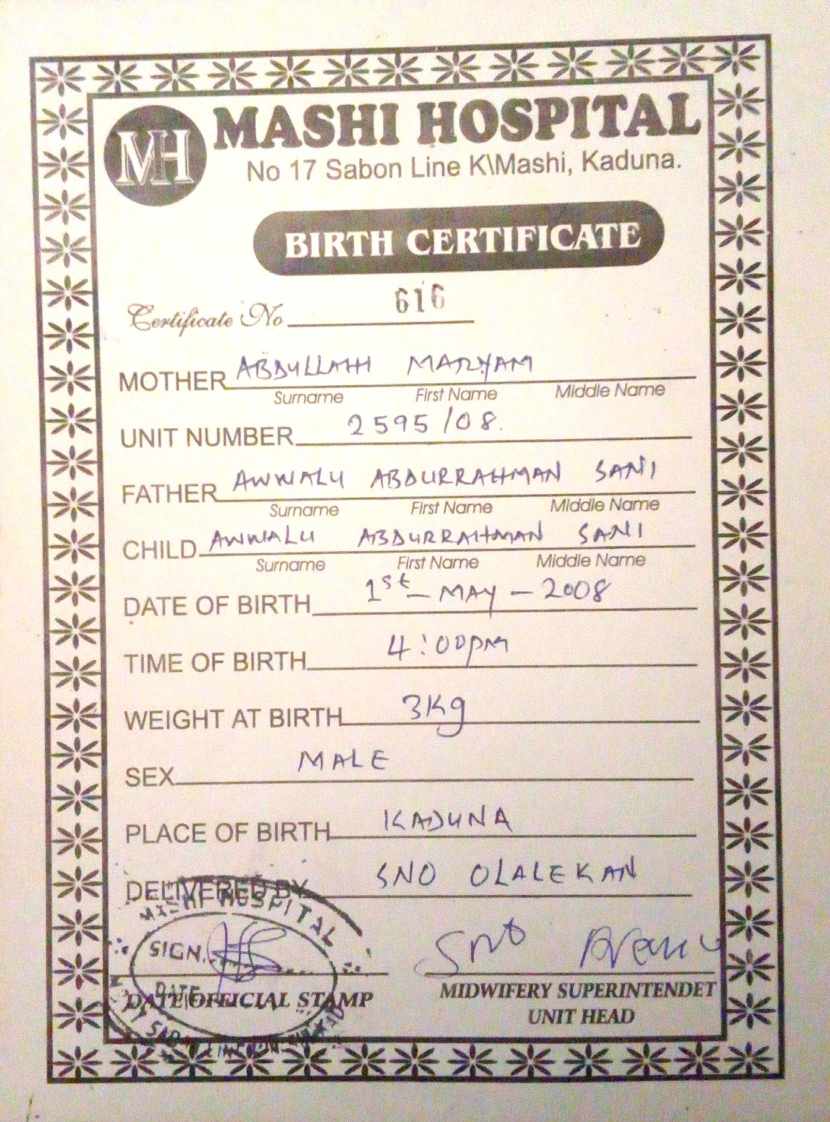 MH MASHI HOSPITAL
No 17 Sabon Line K\Mashi, Kaduna.
BIRTH CERTIFICATE
Certificate No 616
MOTHER ABDULLAHI MARYAM
Surname First Name Middle Name
UNIT NUMBER 2595/08.
FATHER AWWALU ABDURRAHMAN SANI
Surname First Name Middle Name
CHILD AWWALU ABDURRAHMAN SANI
Surname First Name Middle Name
DATE OF BIRTH 1st - MAY - 2008
TIME OF BIRTH 4:00pm
WEIGHT AT BIRTH 3Kg
SEX MALE
PLACE OF BIRTH KADUNA
DELIVERED BY SNO OLALEKAN
MASHI HOSPITAL
SIGN.
DATE
SNO
DATE/OFFICIAL STAMP
MIDWIFERY SUPERINTENDET
UNIT HEAD